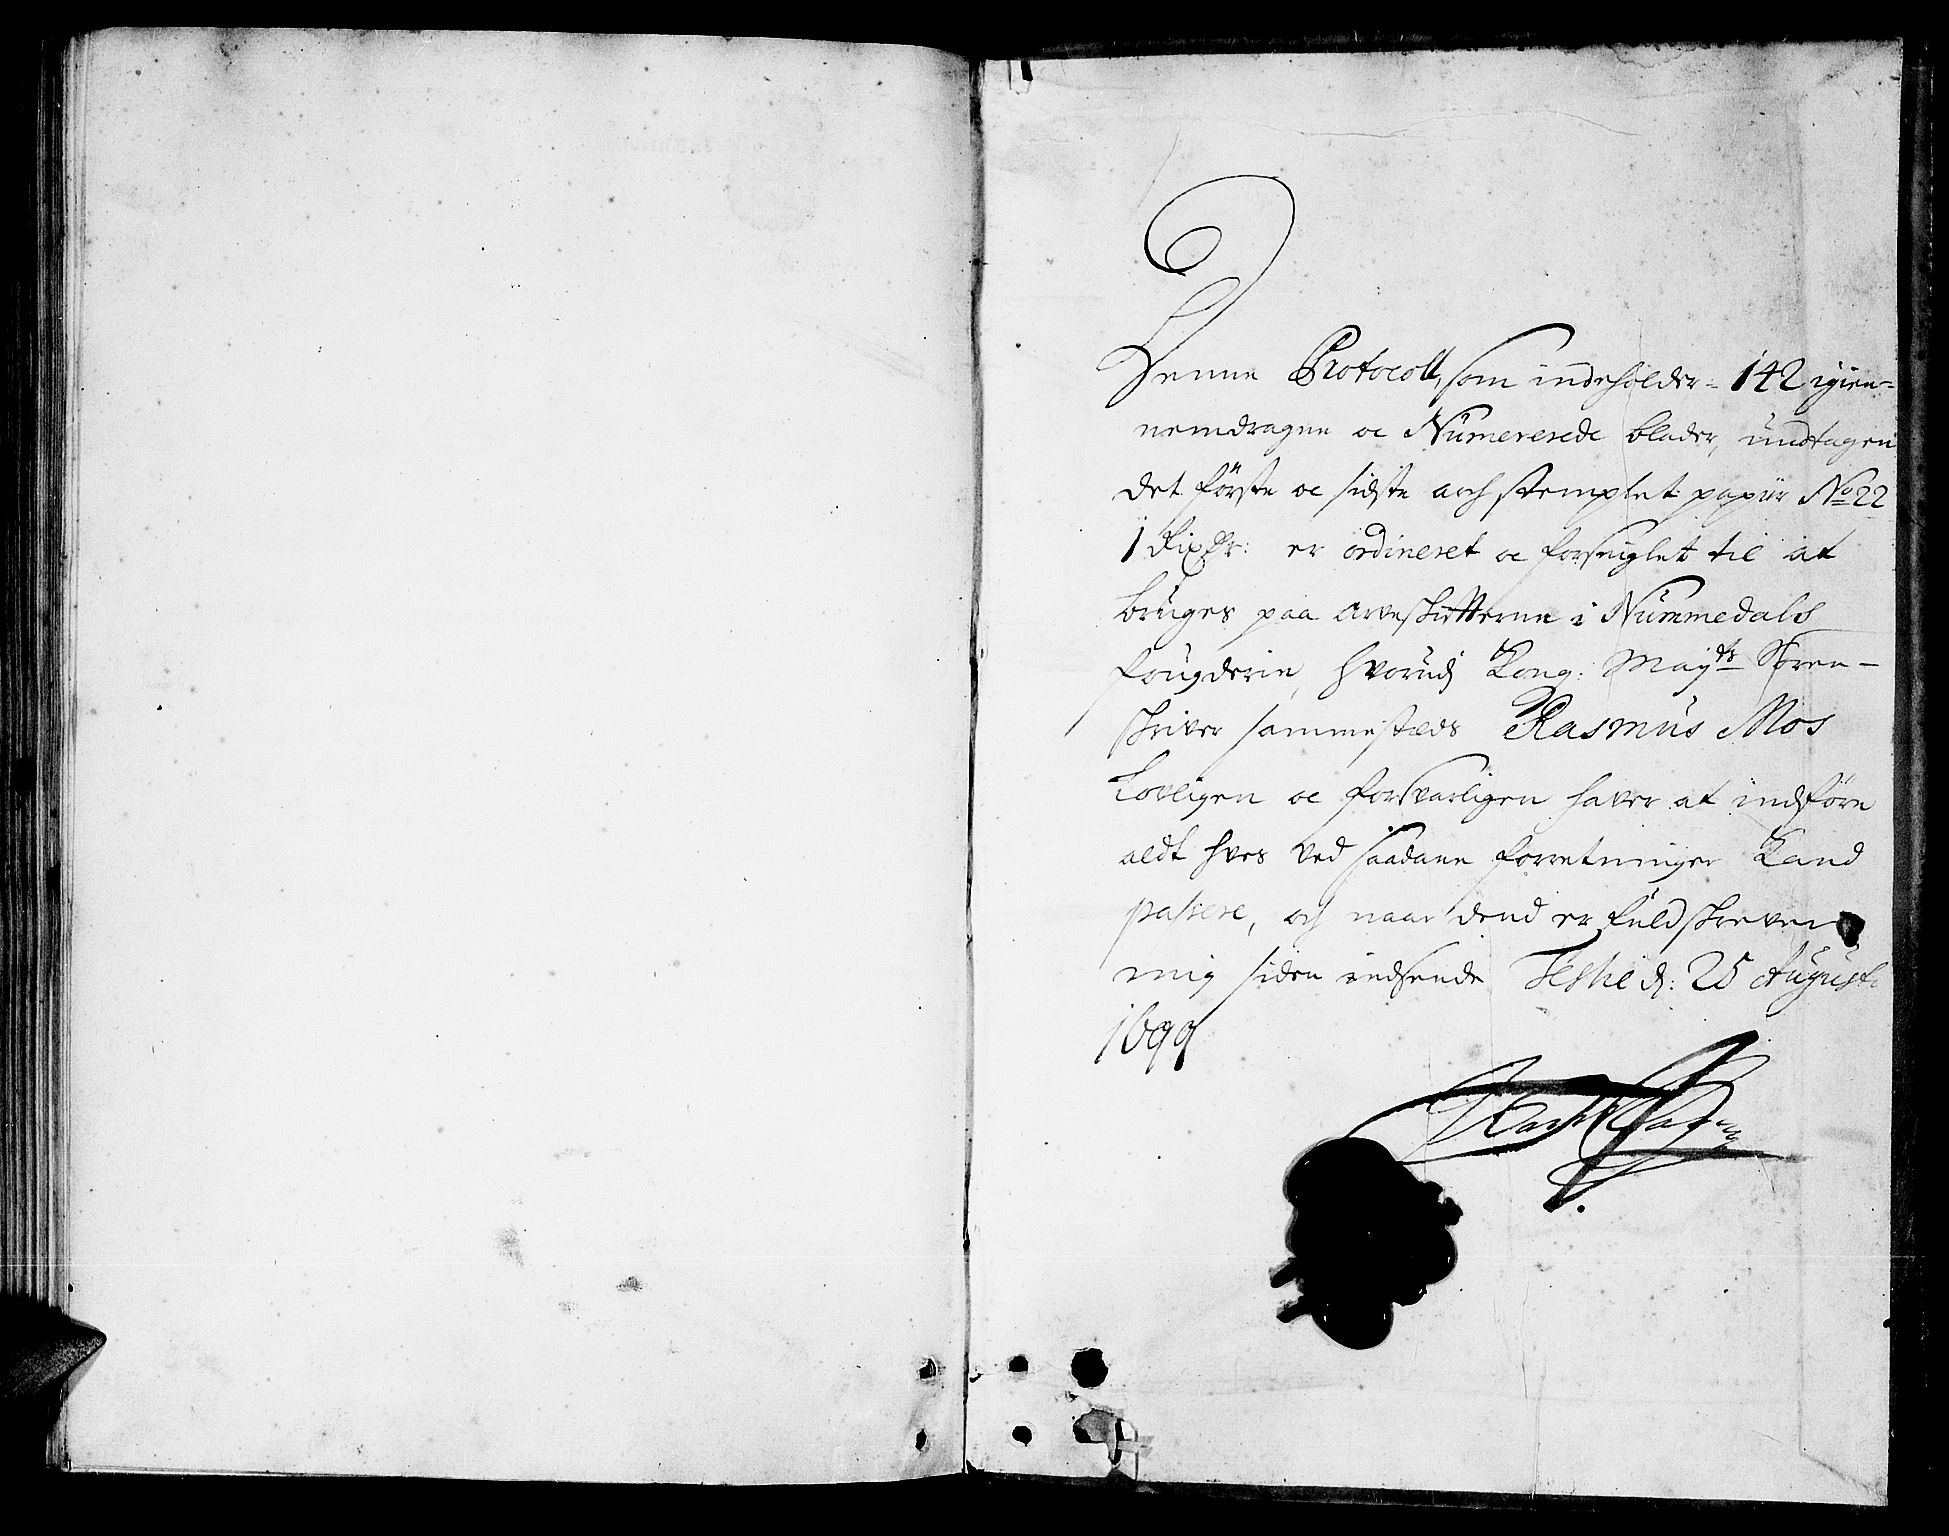 Denne Protocoll, som indeholder 142 igien=
nemdragne oc Numererede blader, undtagen
det förste oc sidste arch stemplet papiir No 22
1 Rixdr: er ordineret oc forseiglet til at
bruges paa arveskiffterne i Nummedals
fougderie, hvorudj Kong: Mayts Soren-
skriver sammesteds Rasmus Mos
lovligen oc forsvarligen haver at indföre
aldt hves ved saadane forretninger Kand
passere, och naar dend er fuldskreven
mig siden indsende d: 25 Augusti
1699